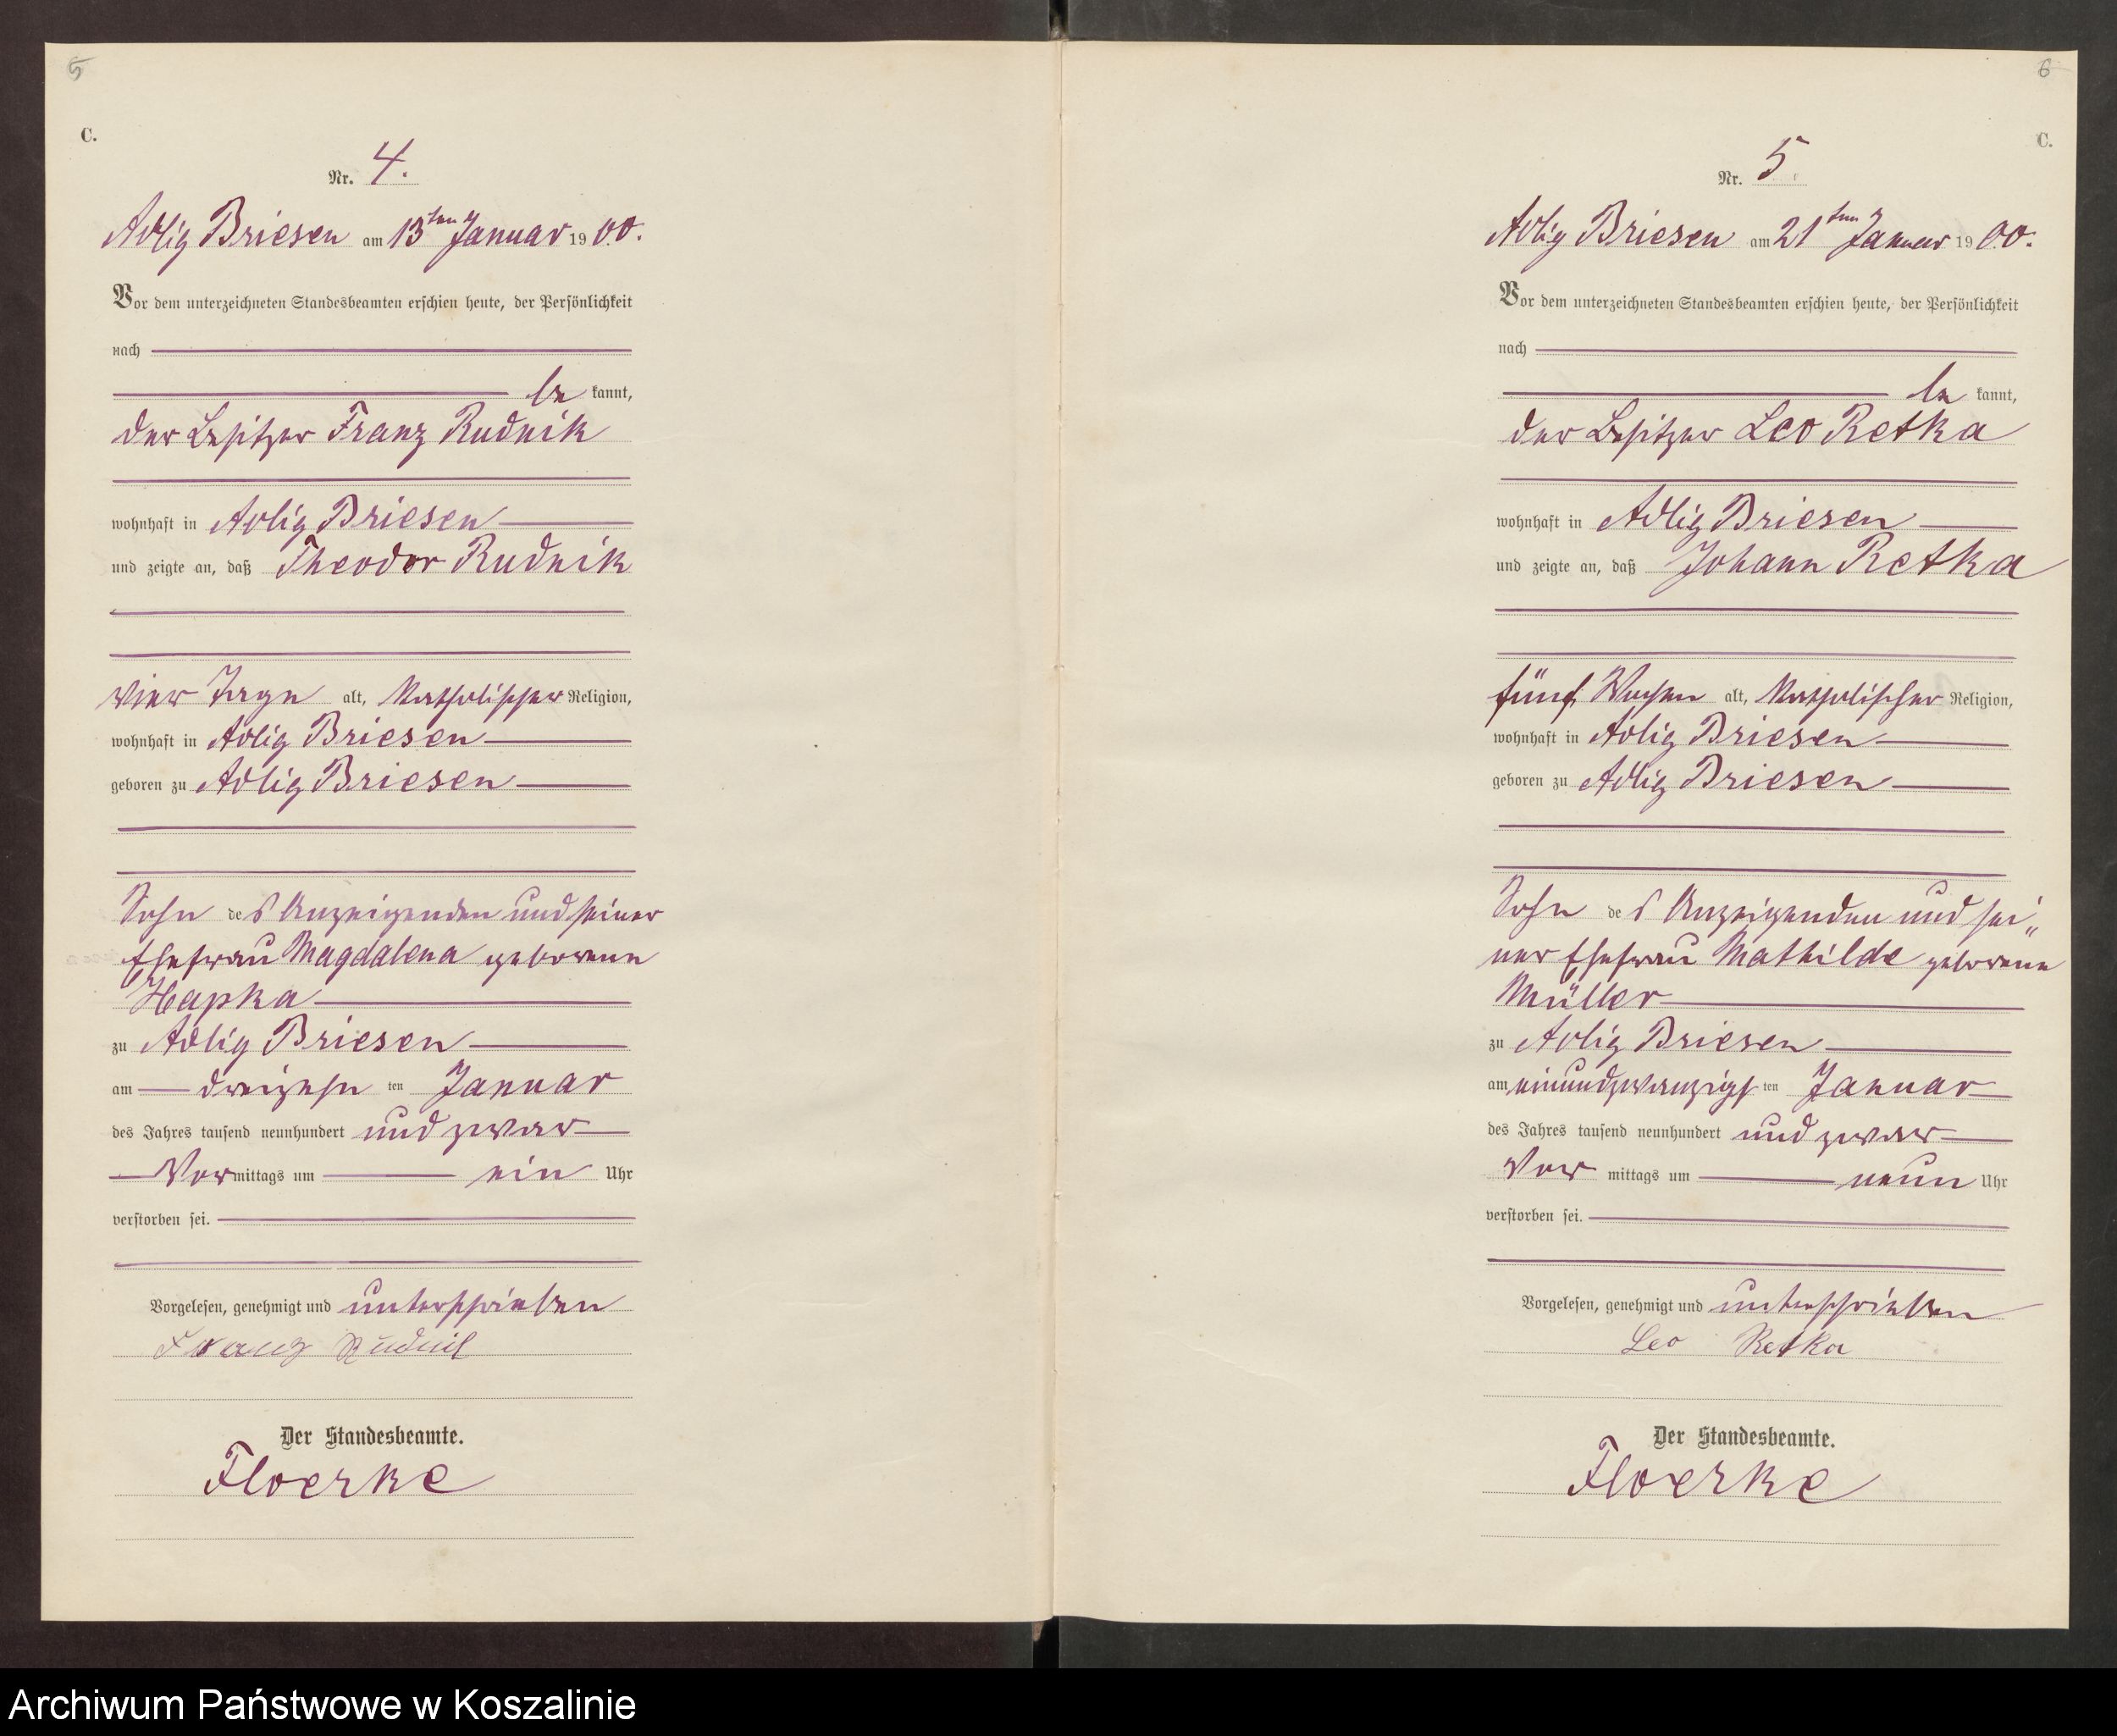 5
C.
Nr. 4.
Adlig Briesen am 13ten Januar 1900.
Vor dem unterzeichneten Standesbeamten erschien heute, der Persönlichkeit
nach
be kannt,
der Besitzer Franz Rudnik
wohnhaft in Adlig Briesen
und zeigte an, daß Theodor Rudnik
vier Tage alt, katholischer Religion,
wohnhaft in Adlig Briesen
geboren zu Adlig Briesen
Sohn des Anzeigenden und seiner
Ehefrau Magdalena geborenen
Hapka
zu Adlig Briesen
am dreizehn ten Januar
des Jahres tausend neunhundert und zwar
Vormittags um ein Uhr
verstorben sei.
Vorgelesen, genehmigt und unterschrieben
Franz Rudnik
Der Standesbeamte.
Floerke
6
C.
Nr. 5.
Adlig Briesen am 21ten Januar 1900.
Vor dem unterzeichneten Standesbeamten erschien heute, der Persönlichkeit
nach
be kannt,
der Besitzer Leo Retka
wohnhaft in Adlig Briesen
und zeigte an, daß Johann Retka
fünf Wochen alt, katholischer Religion,
wohnhaft in Adlig Briesen
geboren zu Adlig Briesen
Sohn des Anzeigenden und sei„
ner Ehefrau Mathilde geborene
Müller
zu Adlig Briesen
am einundzwanzigs ten Januar
des Jahres tausend neunhundert und zwar
Vor mittags um neun Uhr
verstorben sei.
Vorgelesen, genehmigt und unterschrieben
Leo Retka
Der Standesbeamte.
Floerke
Archiwum Państwowe w Koszalinie